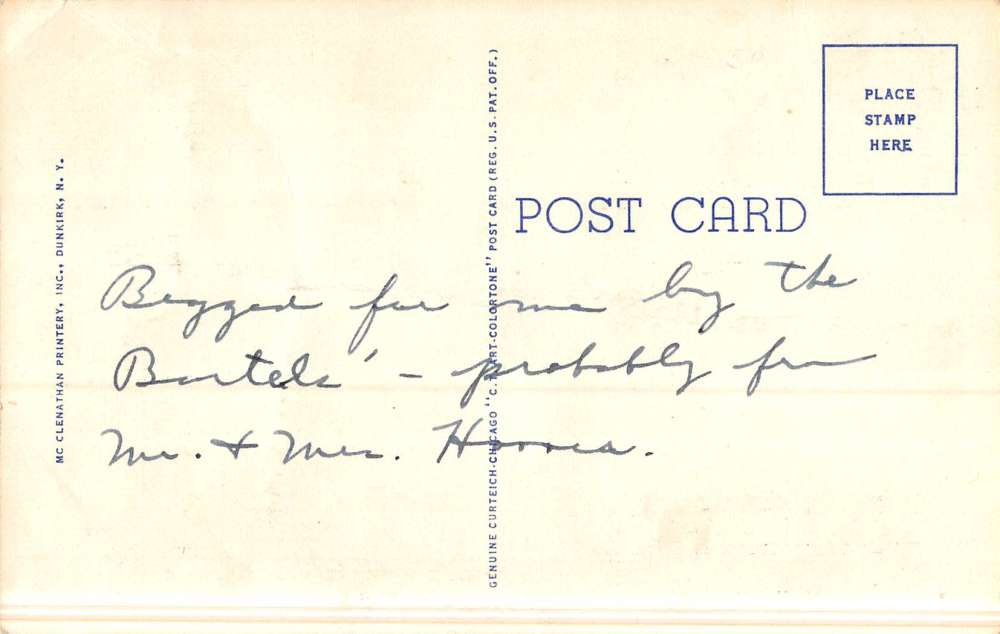 PLACE
STAMP
HERE
POST CARD
MC CLENATHAN PRINTERY, INC., DUNKIRK, N. Y.
GENUINE CURTEICH-CHICAGO "C. T. ART-COLORTONE" POST CARD (REG. U.S. PAT. OFF.)
Begged for me by the
Bartels' – probably from
Mr. & Mrs.